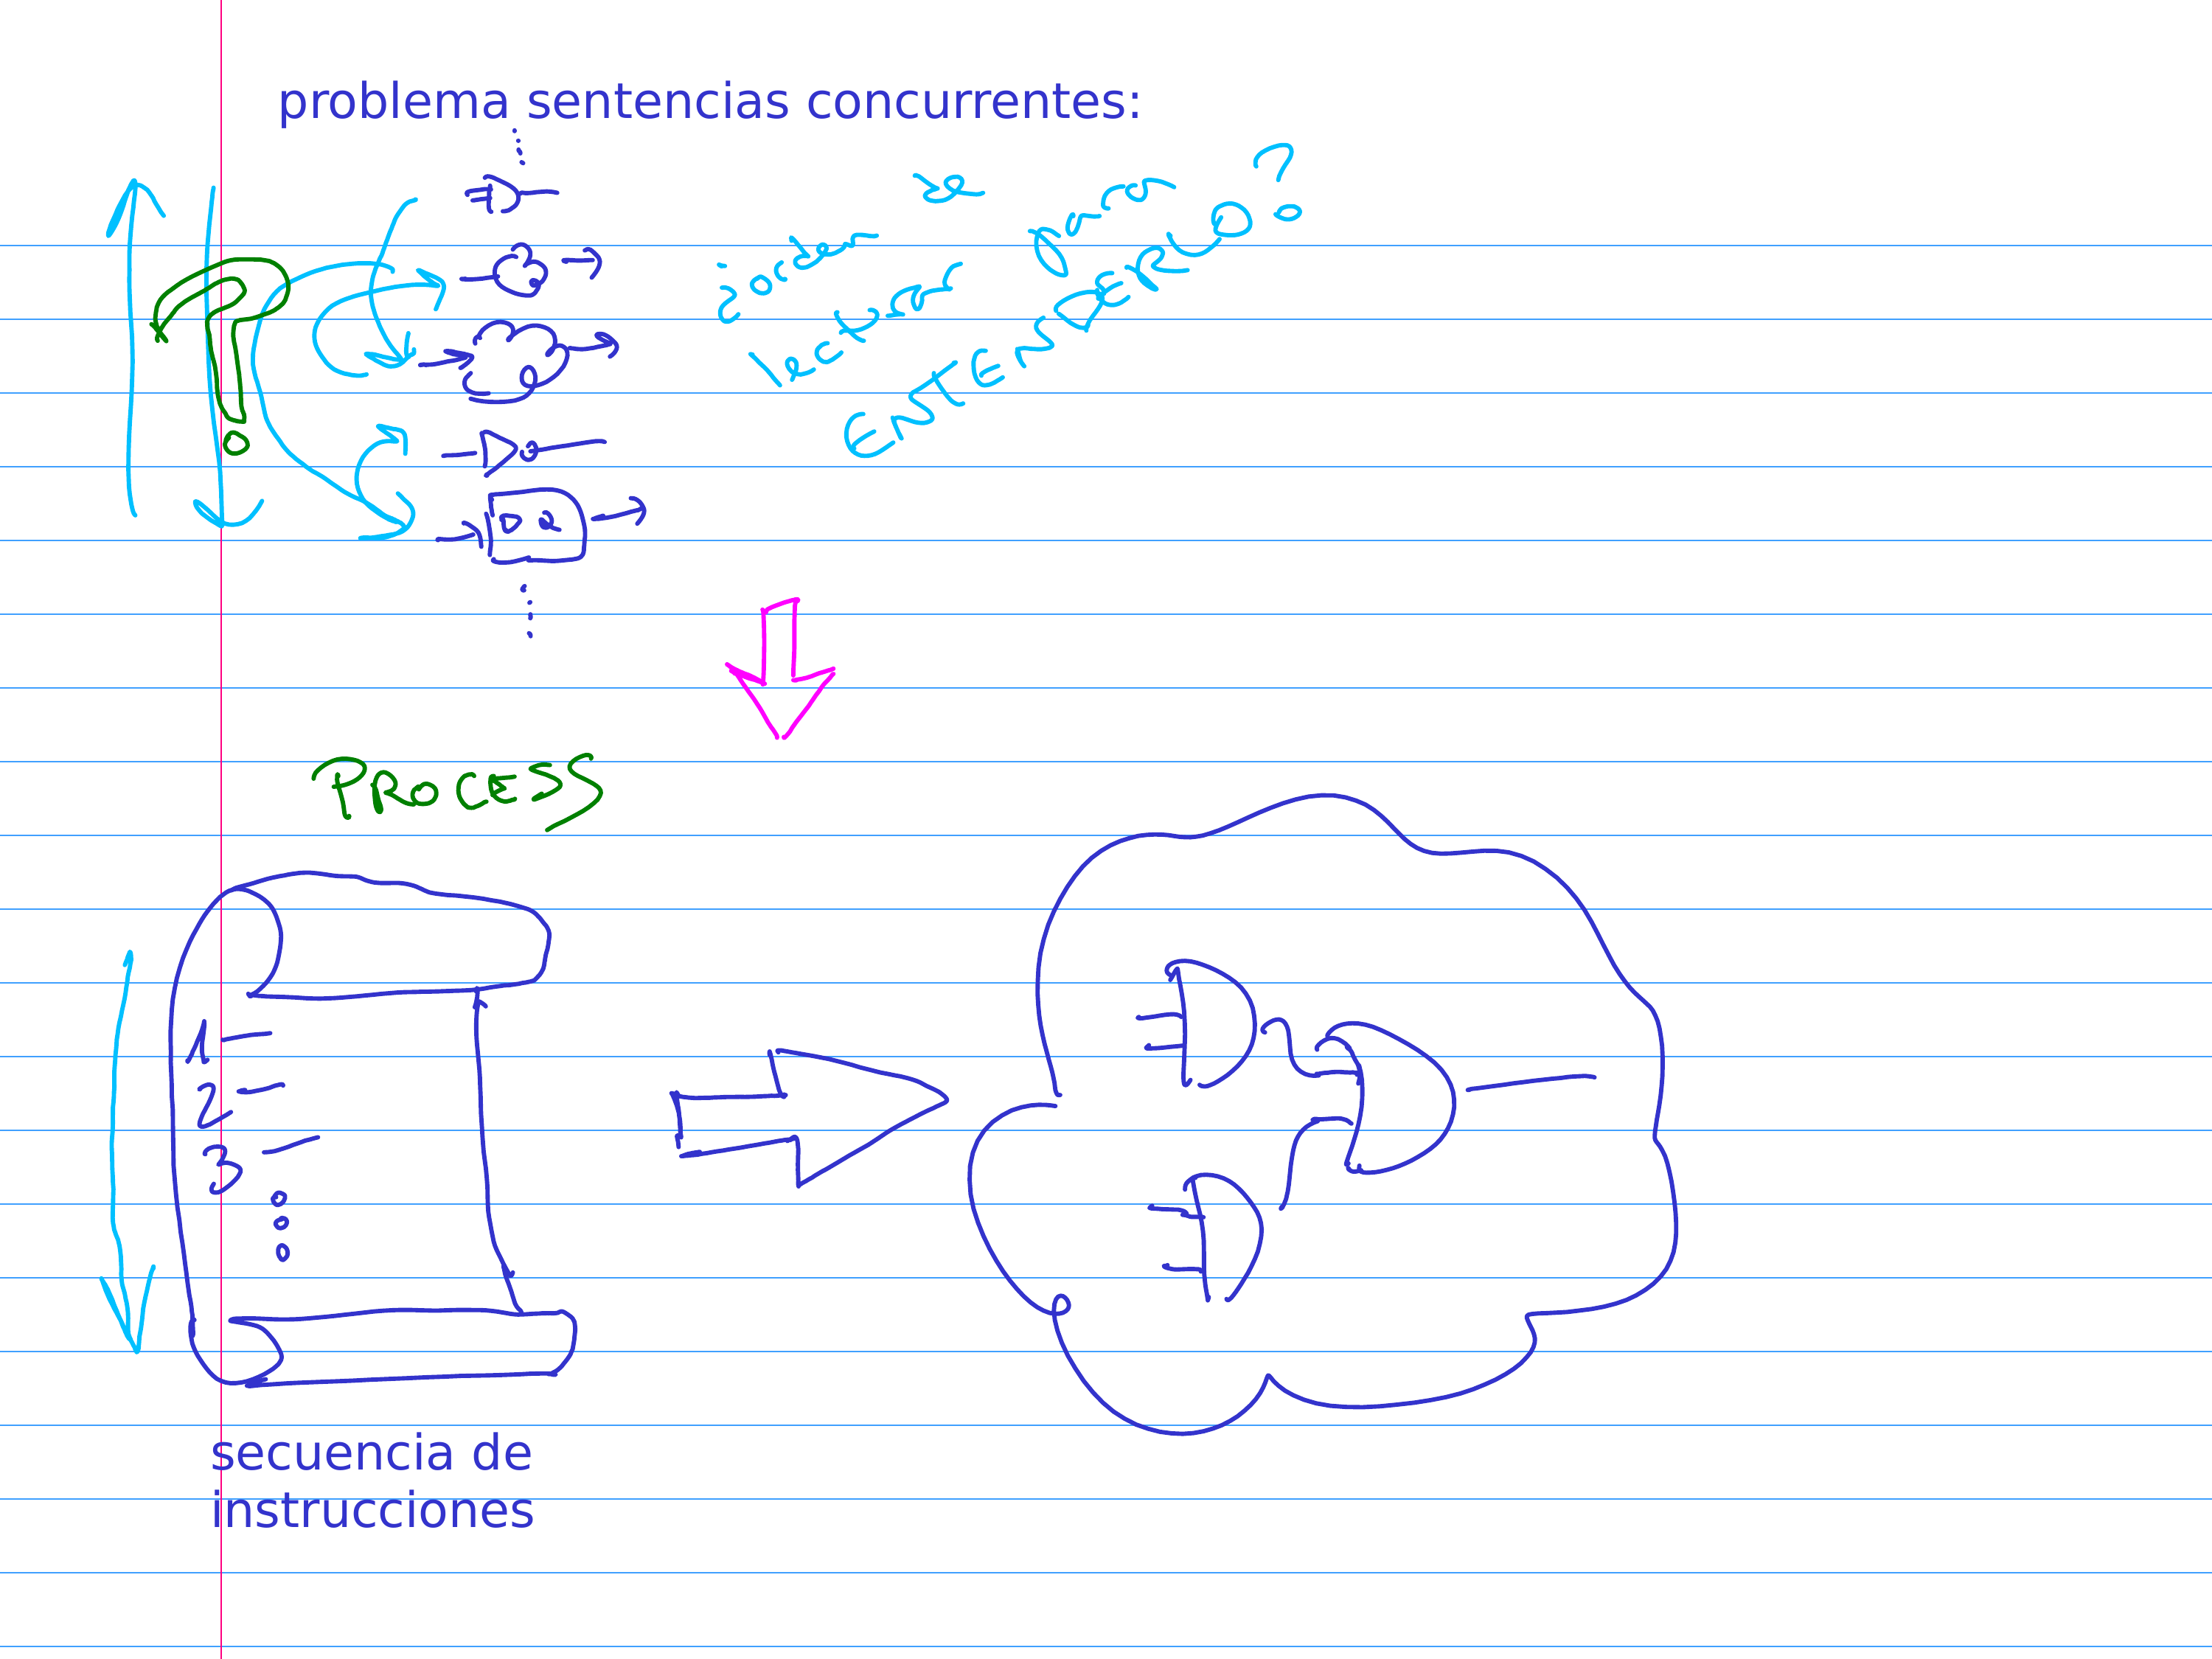 problema sentencias concurrentes:
¿orden de
lectura para
ENTENDERLO?
D Q
PROCESS
1
2
3
secuencia de
instrucciones